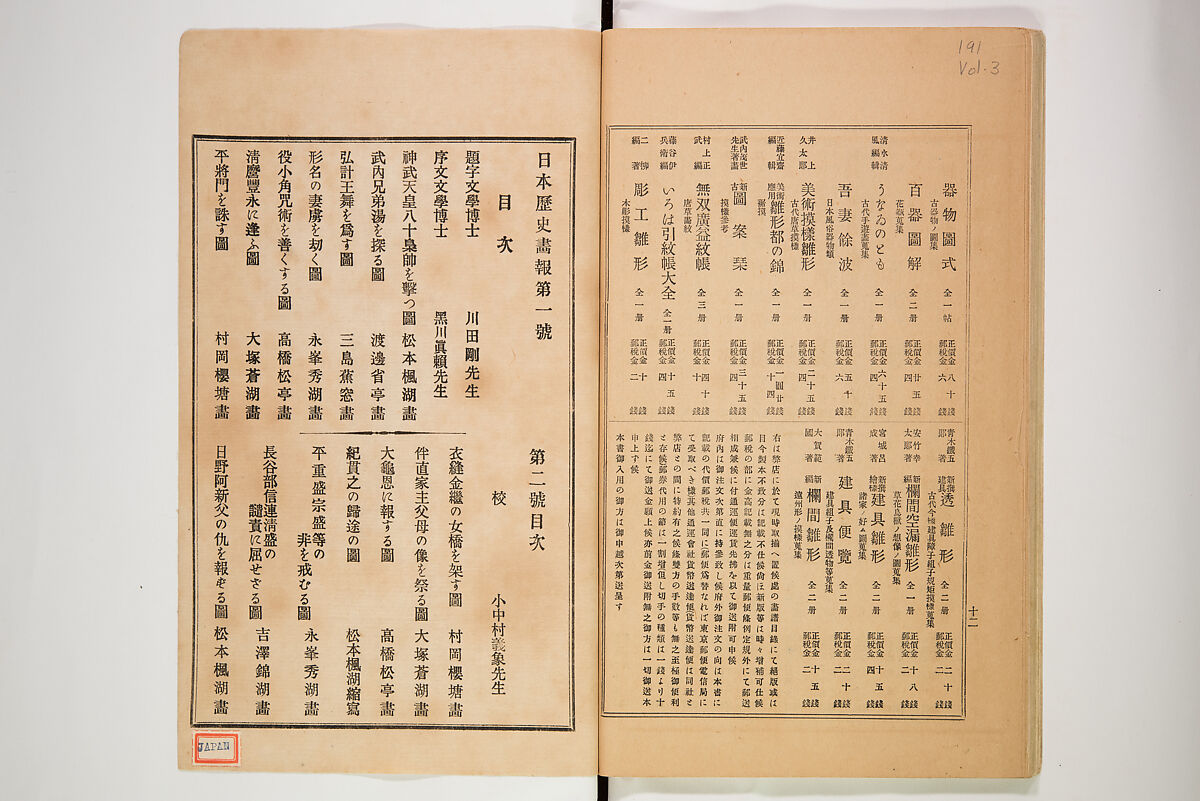 191
Vol. 3
十二
器物圖式 全一帖 正價金八十錢 郵税金六錢
古器物ノ圖集
百器圖解 全二册 正價金廿五錢 郵税金四錢
花瓶蒐集
清水清風編輯 うなゐのとも 全一册 正價金六十五錢 郵税金四錢
古代手遊畵蒐集
吾妻餘波 全一册 正價金五十錢 郵税金六錢
日本風俗器物類
井上久太郎 美術摸樣雛形 全一册 正價金二十五錢 郵税金四錢
古代唐草摸樣
近藤宜齋編輯 美術應用錺雛形都の錦 全一册 正價金一圓廿錢 郵税金十四錢
武内茂世先生著畵 新古圖案栞 全一册 正價金三十五錢 郵税金四錢
摸樣參考
村上正武編 無双廣益紋帳 全三册 正價金四十錢 郵税金十錢
唐草畵紋
藤谷伊兵衞編 いろは引紋帳大全 全一册 正價金十五錢 郵税金四錢
二柳編著 彫工雛形 全一册 正價金十錢 郵税金二錢
木彫摸樣
青木鐵五郎著 新撰建具透雛形 全二册 正價金二十錢 郵税金二錢
古代今樣建具障子組子規矩摸樣蒐集
安竹幸太郎著 新編欄間空漏雛形 全一册 正價金十八錢 郵税金二錢
草花鳥獸ノ想像ノ圖蒐集
宮城呂成著 新撰繪樣建具雛形 全二册 正價金十五錢 郵税金四錢
諸家ノ好ム圖蒐集
青木鐵五郎著 建具便覽 全二册 正價金二十錢 郵税金二錢
建具組子及欄間透物等蒐集
大賀範國著 新編欄間雛形 全二册 正價金十五錢 郵税金二錢
遠州形ノ摸樣蒐集
右は弊店に於て現時取揃へ置候處の畵譜目錄にて絕版或は
目今製本不致分は記載不仕候尙ほ新版等は時々增補可仕候
郵税の部に金高記載無之分は重量郵便條例定規外にて郵送
相成兼候に付通運便運賃先拂を以て御送附可申候
府内は御注文次第直に持參致し候府外御注文の向は本書に
記載の代價郵税共一同に郵便爲替なれば東京郵便電信局に
て受取べき樣其他通運會社貨幣送達便貨幣送達便は同社と
弊店との間に特約有之候條雙方の手數等も無之至極御便利
と存候郵券代用の節は一割增但し切手の種類は一錢より十
錢迄にて御送金願上候亦前金御送附無之御方は一切御送本
申上ず候
本書御入用の御方は御申越次第送呈す
日本歷史畵報第一號
目次
題字文學博士 川田剛先生
序文文學博士 黑川眞賴先生
神武天皇八十梟帥を擊つ圖 松本楓湖畵
武内兄弟湯を探る圖 渡邊省亭畵
弘計王舞を爲す圖 三島蕉窓畵
形名の妻虜を刧く圖 永峯秀湖畵
役小角咒術を善くする圖 高橋松亭畵
清麿豐永に逢ふ圖 大塚蒼湖畵
平將門を誅す圖 村岡櫻塘畵
第二號目次
校 小中村義象先生
衣縫金繼の女橋を架す圖 村岡櫻塘畵
伴直家主父母の像を祭る圖 大塚蒼湖畵
大龜恩に報する圖 高橋松亭畵
紀貫之の歸途の圖 松本楓湖縮寫
平重盛宗盛等の非を戒むる圖 永峯秀湖畵
長谷部信連淸盛の譴責に屈せさる圖 吉澤錦湖畵
日野阿新父の仇を報ゆる圖 松本楓湖畵
JAPAN